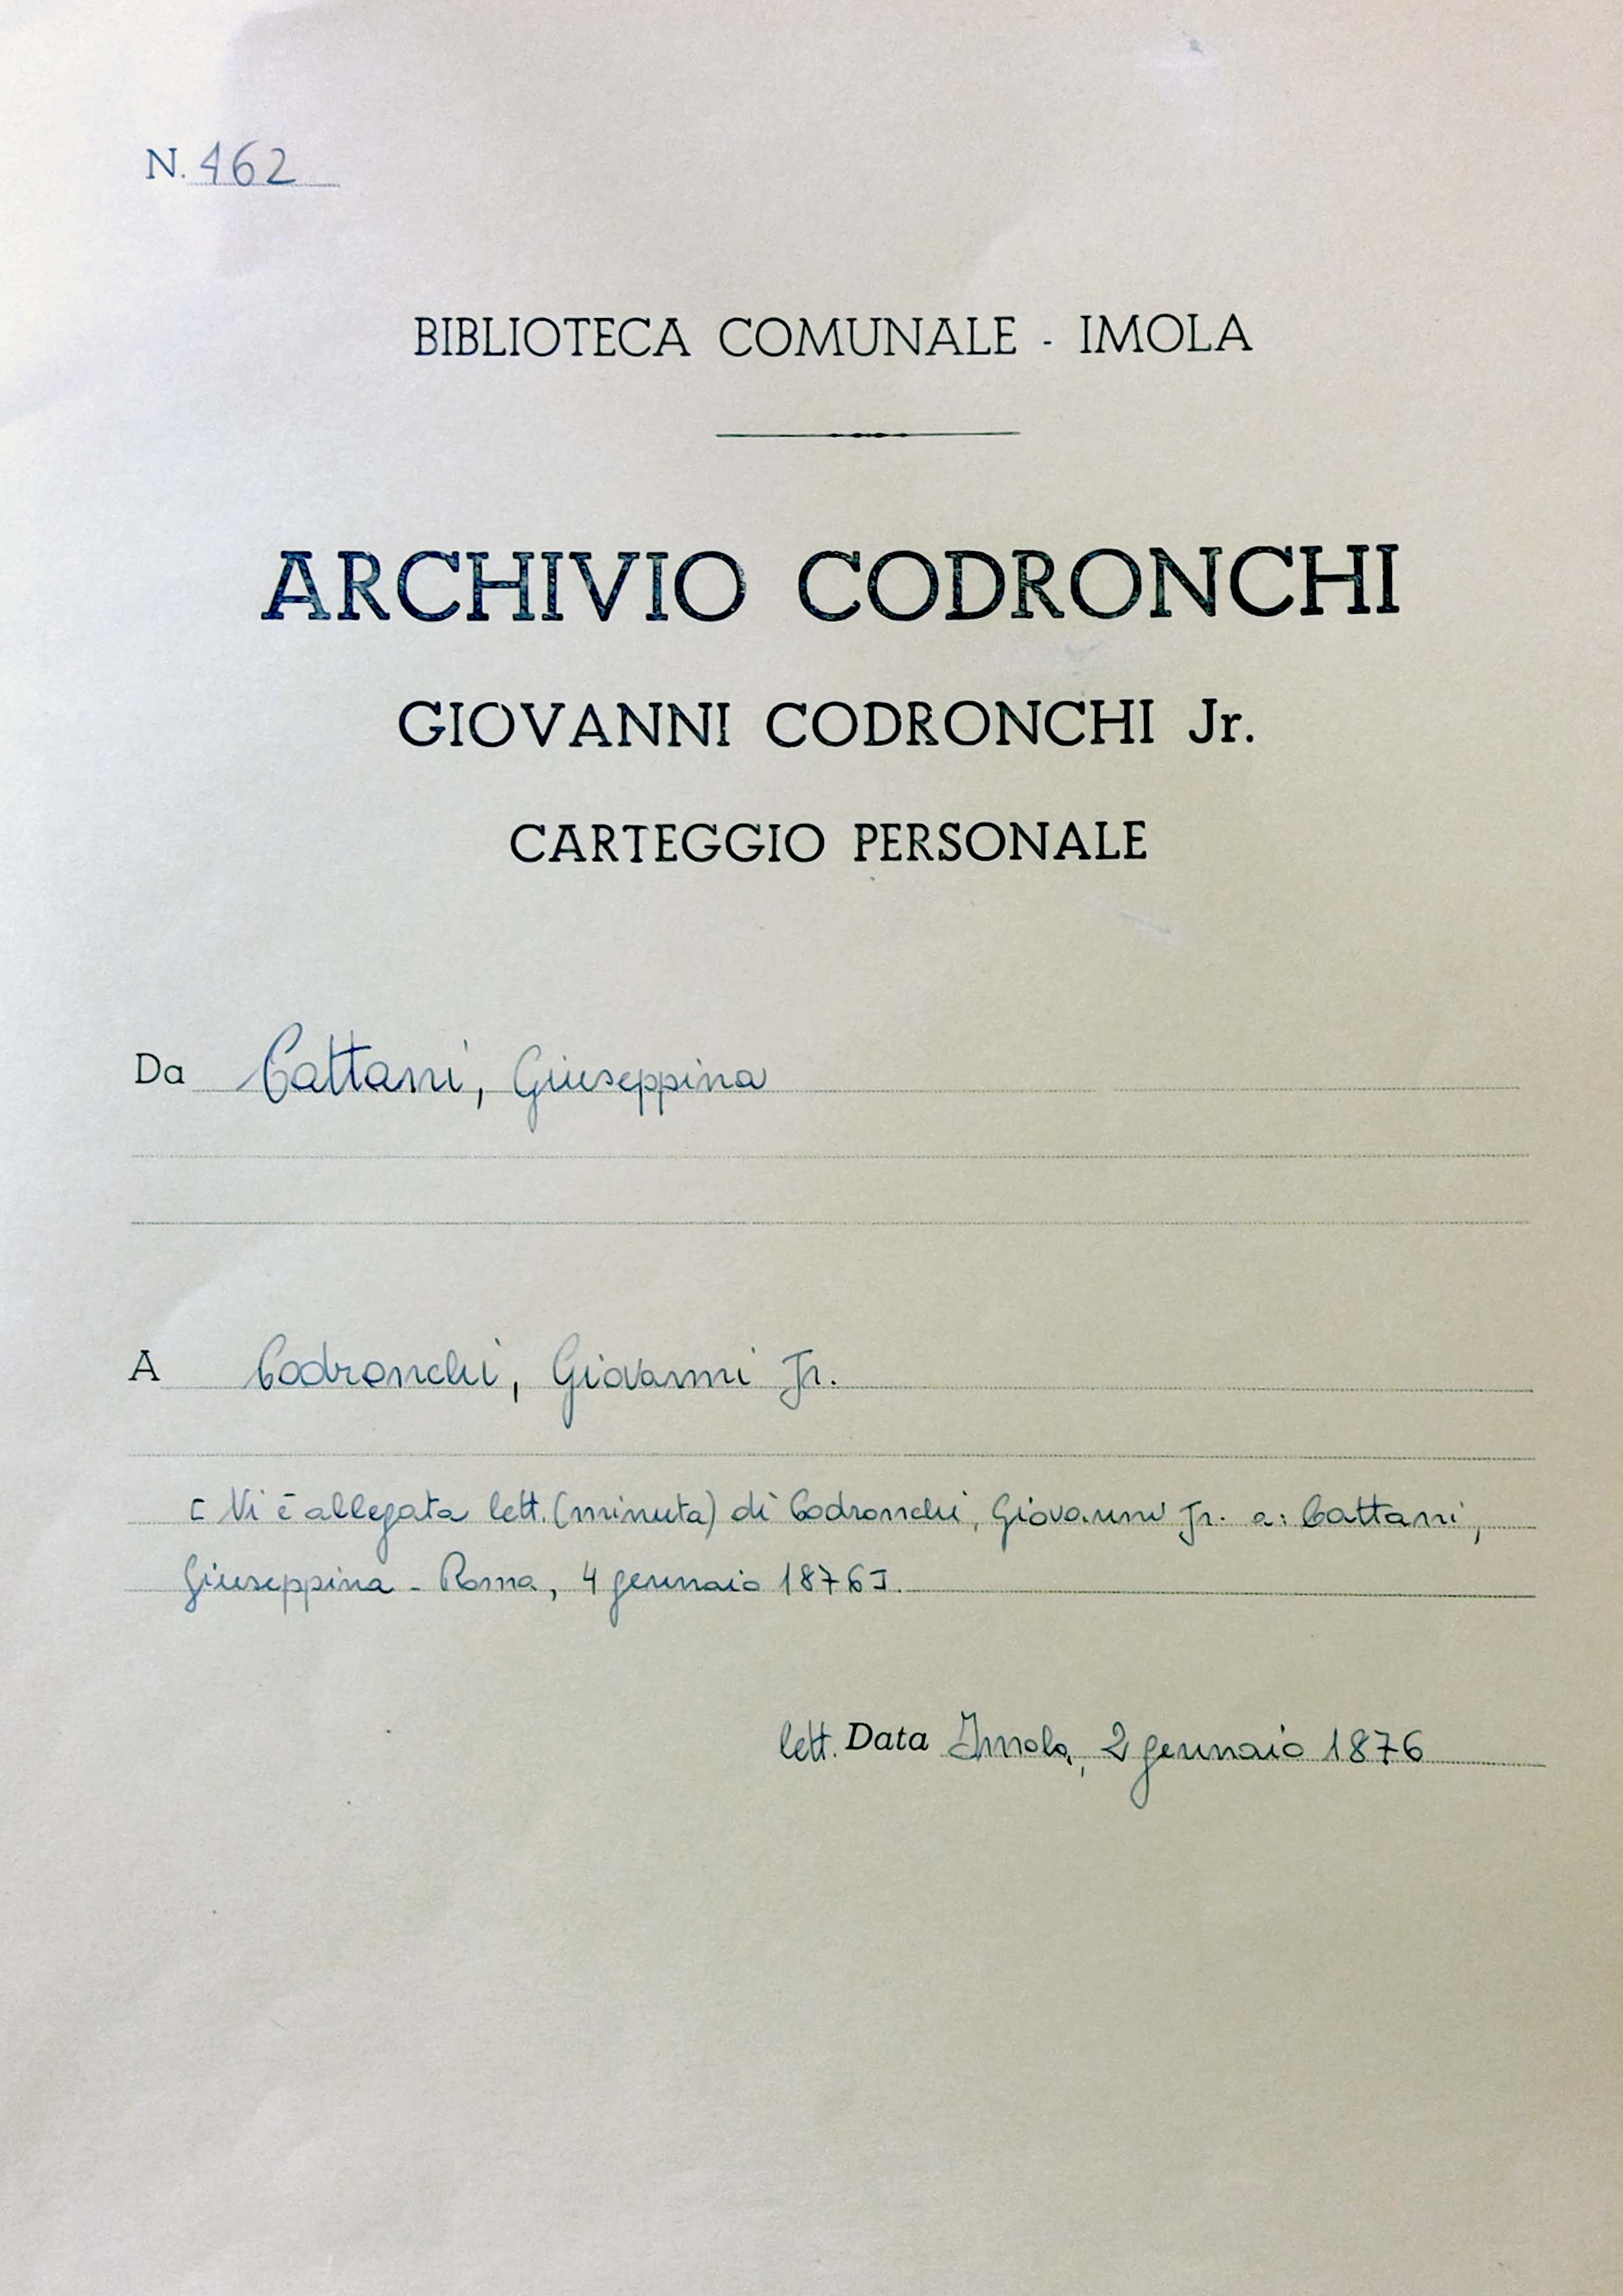 N. 462
BIBLIOTECA COMUNALE - IMOLA
ARCHIVIO CODRONCHI
GIOVANNI CODRONCHI Jr.
CARTEGGIO PERSONALE
Da Cattani, Giuseppina
A Codronchi, Giovanni Jr.
[Vi è allegata lett. (minuta) di Codronchi, Giovanni Jr. a: Cattani,
Giuseppina - Roma, 4 gennaio 1876].
lett. Data Imola, 2 gennaio 1876